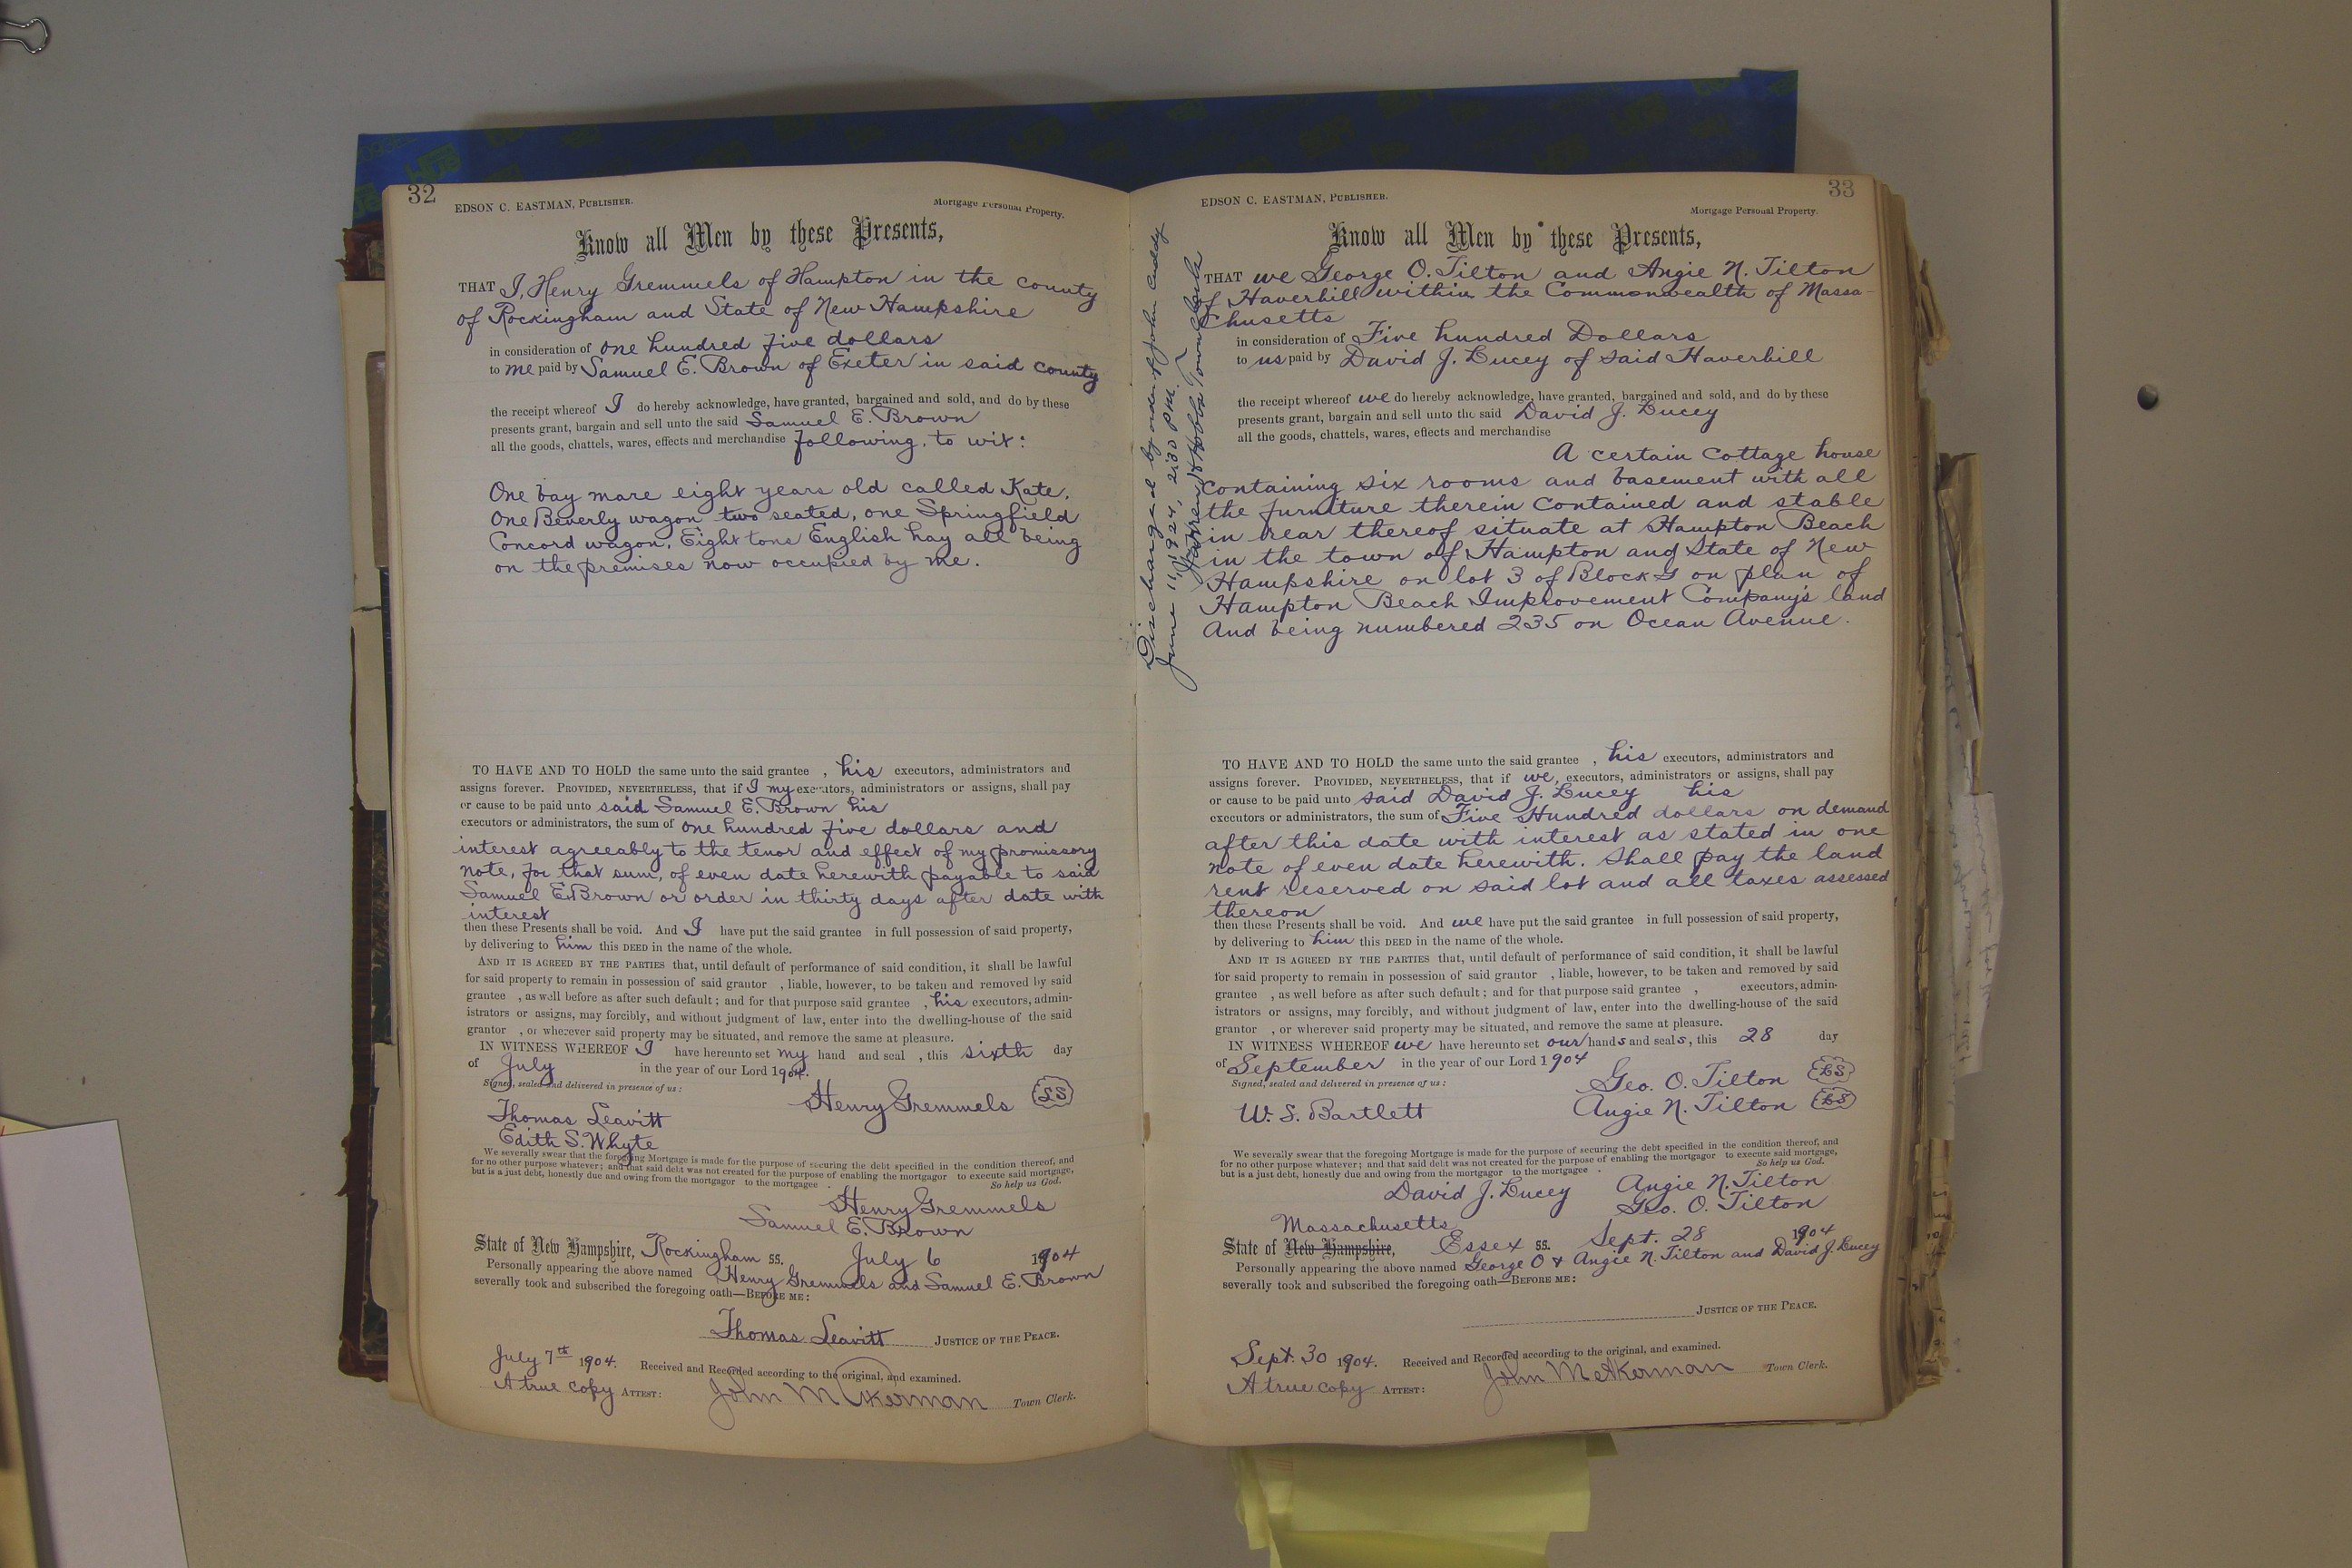 32
EDSON C. EASTMAN, PUBLISHER.
Mortgage Personal Property.
Know all Men by these Presents,
THAT I, Henry Gremmels of Hampton in the county
of Rockingham and State of New Hampshire
in consideration of one hundred five dollars
to me paid by Samuel E. Brown of Exeter in said county
the receipt whereof I do hereby acknowledge, have granted, bargained and sold, and do by these
presents grant, bargain and sell unto the said Samuel E. Brown
all the goods, chattels, wares, effects and merchandise following, to wit:
One bay mare eight years old called Kate.
One Beverly wagon two seated, one Springfield
Concord wagon, Eight tons English hay all being
on the premises now occupied by me.
TO HAVE AND TO HOLD the same unto the said grantee , his executors, administrators and
assigns forever. PROVIDED, NEVERTHELESS, that if I my executors, administrators or assigns, shall pay
or cause to be paid unto said Samuel E. Brown his
executors or administrators, the sum of one hundred five dollars and
interest agreeably to the tenor and effect of my promissory
note, for that sum, of even date herewith payable to said
Samuel E. Brown or order in thirty days after date with
interest
then these Presents shall be void. And I have put the said grantee in full possession of said property,
by delivering to him this DEED in the name of the whole.
AND IT IS AGREED BY THE PARTIES that, until default of performance of said condition, it shall be lawful
for said property to remain in possession of said grantor , liable, however, to be taken and removed by said
grantee , as well before as after such default; and for that purpose said grantee , his executors, admin-
istrators or assigns, may forcibly, and without judgment of law, enter into the dwelling-house of the said
grantor , or wherever said property may be situated, and remove the same at pleasure.
IN WITNESS WHEREOF I have hereunto set my hand and seal , this sixth day
of July in the year of our Lord 1904.
Signed, sealed and delivered in presence of us:
Henry Gremmels LS
Thomas Leavitt
Edith S. Whyte
We severally swear that the foregoing Mortgage is made for the purpose of securing the debt specified in the condition thereof, and
for no other purpose whatever; and that said debt was not created for the purpose of enabling the mortgagor to execute said mortgage,
but is a just debt, honestly due and owing from the mortgagor to the mortgagee . So help us God.
Henry Gremmels
Samuel E. Brown
State of New Hampshire, Rockingham SS. July 6 1904
Personally appearing the above named Henry Gremmels and Samuel E. Brown
severally took and subscribed the foregoing oath—BEFORE ME:
Thomas Leavitt JUSTICE OF THE PEACE.
July 7th 1904. Received and Recorded according to the original, and examined.
A true copy ATTEST: John M Akerman Town Clerk.
33
EDSON C. EASTMAN, PUBLISHER.
Mortgage Personal Property.
Know all Men by these Presents,
Discharged by order of John Cuddy
June 11, 1924, 2:30 P.M.
Hobbs Town Clerk
THAT we George O. Tilton and Angie N. Tilton
of Haverhill within the Commonwealth of Massa-
chusetts
in consideration of Five hundred Dollars
to us paid by David J. Lucey of said Haverhill
the receipt whereof we do hereby acknowledge, have granted, bargained and sold, and do by these
presents grant, bargain and sell unto the said David J. Lucey
all the goods, chattels, wares, effects and merchandise
A certain Cottage house
containing six rooms and basement with all
the furniture therein contained and stable
in rear thereof situate at Hampton Beach
in the town of Hampton and State of New
Hampshire on lot 3 of Block G on plan of
Hampton Beach Improvement Company's land
And being numbered 235 on Ocean Avenue.
TO HAVE AND TO HOLD the same unto the said grantee , his executors, administrators and
assigns forever. PROVIDED, NEVERTHELESS, that if we, executors, administrators or assigns, shall pay
or cause to be paid unto said David J. Lucey his
executors or administrators, the sum of Five Hundred dollars on demand
after this date with interest as stated in one
note of even date herewith. Shall pay the land
rent reserved on said lot and all taxes assessed
thereon
then these Presents shall be void. And we have put the said grantee in full possession of said property,
by delivering to him this DEED in the name of the whole.
AND IT IS AGREED BY THE PARTIES that, until default of performance of said condition, it shall be lawful
for said property to remain in possession of said grantor , liable, however, to be taken and removed by said
grantee , as well before as after such default; and for that purpose said grantee , executors, admin-
istrators or assigns, may forcibly, and without judgment of law, enter into the dwelling-house of the said
grantor , or wherever said property may be situated, and remove the same at pleasure.
IN WITNESS WHEREOF we have hereunto set our hands and seals, this 28 day
of September in the year of our Lord 1904
Signed, sealed and delivered in presence of us:
Geo. O. Tilton LS
W. S. Bartlett Angie N. Tilton LS
We severally swear that the foregoing Mortgage is made for the purpose of securing the debt specified in the condition thereof, and
for no other purpose whatever; and that said debt was not created for the purpose of enabling the mortgagor to execute said mortgage,
but is a just debt, honestly due and owing from the mortgagor to the mortgagee . So help us God.
David J. Lucey Angie N. Tilton
Geo. O. Tilton
Massachusetts
State of New Hampshire, Essex SS. Sept. 28 1904
Personally appearing the above named George O & Angie N. Tilton and David J. Lucey
severally took and subscribed the foregoing oath—BEFORE ME:
JUSTICE OF THE PEACE.
Sept. 30 1904. Received and Recorded according to the original, and examined.
A true copy ATTEST: John M Akerman Town Clerk.